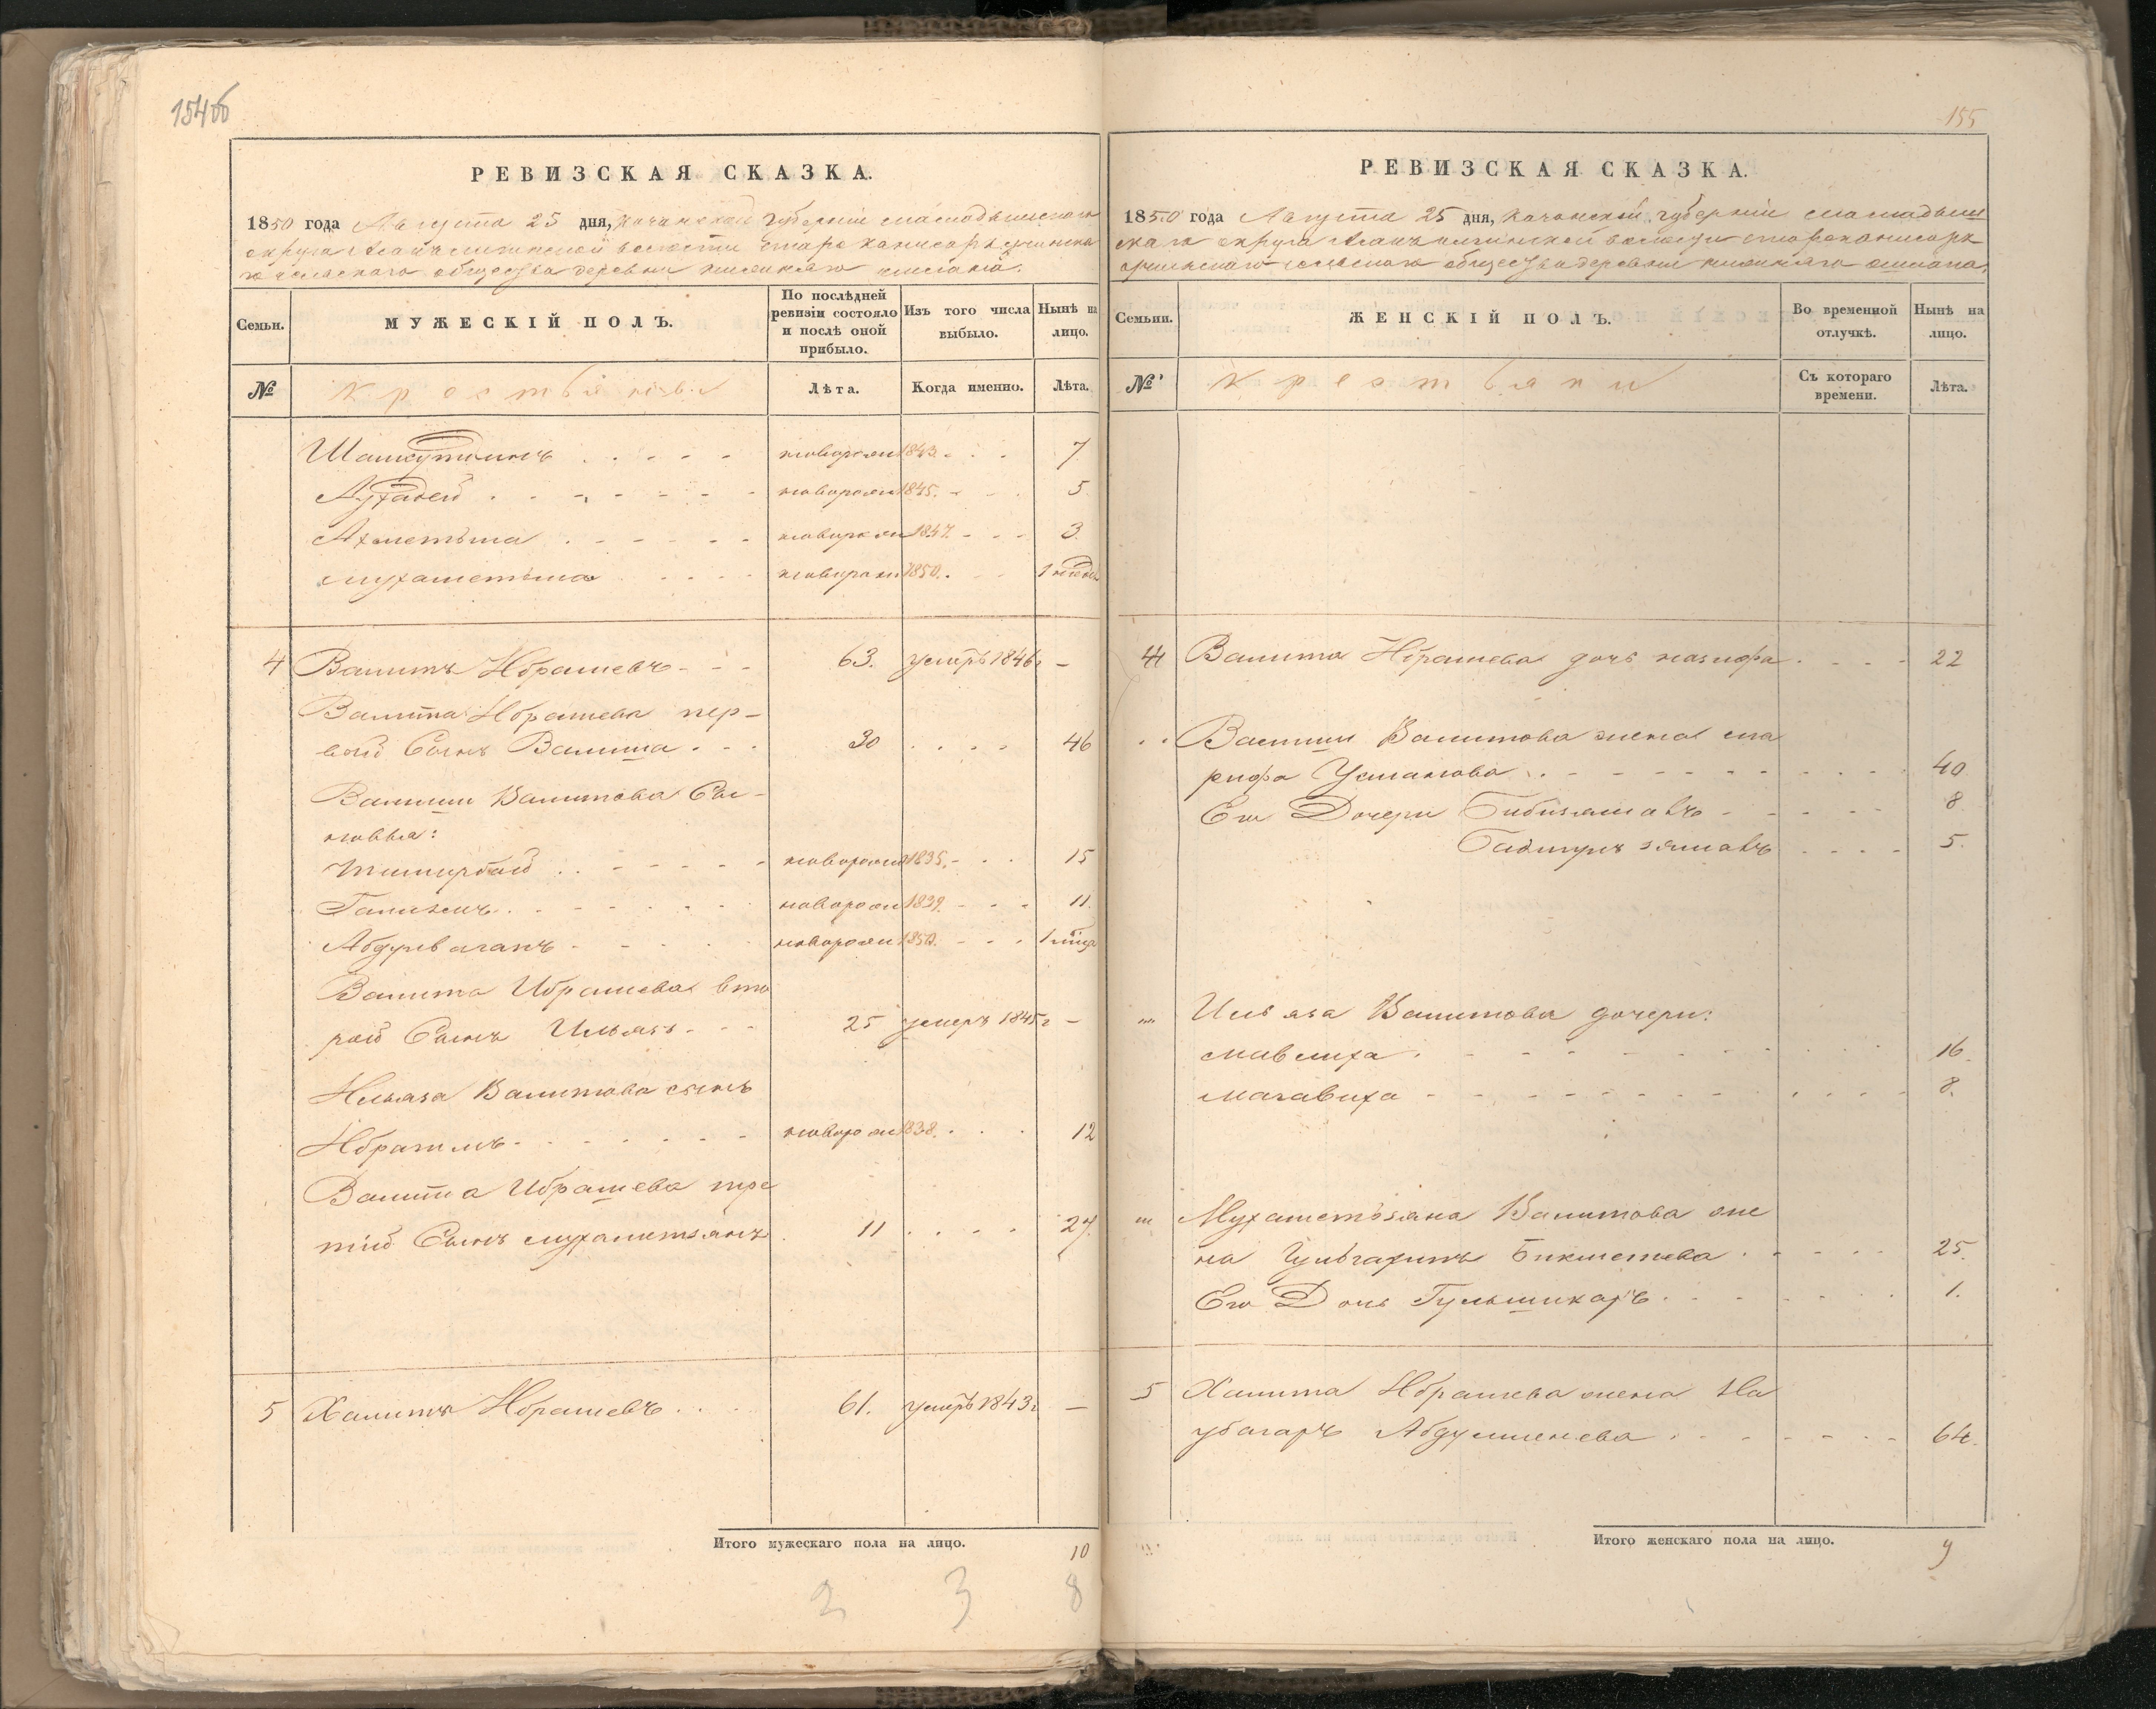 154об
РЕВИЗСКАЯ СКАЗКА.
1850 года Августа 25 дня, Казанской губерніи Мамадышскаго
округа волости Старо
сельскаго общества деревни
Семьи. МУЖЕСКІЙ ПОЛЪ. По послѣдней ревизіи состояло и послѣ оной прибыло. Изъ того числа выбыло. Нынѣ на лицо.
№ Крестьяне Лѣта. Когда именно. Лѣта.
новорожд 1843. 7
новорожд 1845. 5
Ахметьша новорожд 1847. 3
Мухаметьша новорожд 1850. 1 недѣл
4 Валитъ Ибрашевъ 63. умеръ 1846 г —
Валита Ибрашева пер-
вой Сынъ Валиша 30 46
Валиши Валитова Сы-
новья:
Тимирбай новорожд 1835. 15
Галимъ новорожд 1839. 11.
Абдулваганъ новорожд 1850. 1 мѣся
Валита Ибрашева вто
рой Сынъ Ильясъ 25 умеръ 1845 г —
Ильяса Валитова сынъ
Ибрагимъ новорожд 1838. 12
Валита Ибрашева тре
тій Сынъ Мухаметзянъ 11 27.
5 Халитъ Ибрашевъ 61. умеръ 1843 г —
Итого мужескаго пола на лицо. 10
2 3 8
155
РЕВИЗСКАЯ СКАЗКА.
1850 года Августа 25 дня, Казанской губерніи Мамадыш
скаго округа волости
сельскаго общества деревни
Семьи. ЖЕНСКІЙ ПОЛЪ. Во временной отлучкѣ. Нынѣ на лицо.
№ Крестьянки Съ котораго времени. Лѣта.
4 Валита Ибрашева дочь Назифа 22
Валиши Валитова жена Ша
рифа Усманова 40
Его Дочери Бибизямалъ 8
Бадигулзямалъ 5.
Ильяса Валитова дочери:
Мавлиха 16.
Магавиха 8.
Мухаметьзяна Валитова же
на Гульгаринъ Бикметева 25.
Его Дочь Гульшикаръ 1.
5 Халита Ибрашева жена На
убагаръ Абдулменева 64.
Итого женскаго пола на лицо. 9